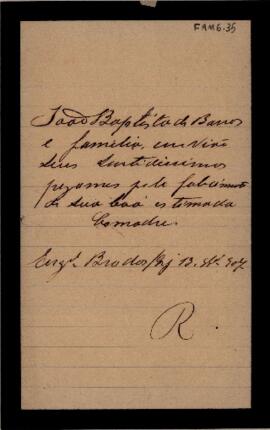 FAM6.35
João Baptista de Barros
e familia, envião
seus sentidissimos
pezames pelo falecimento
de sua boa estimada
Comadre.
Engº
R.